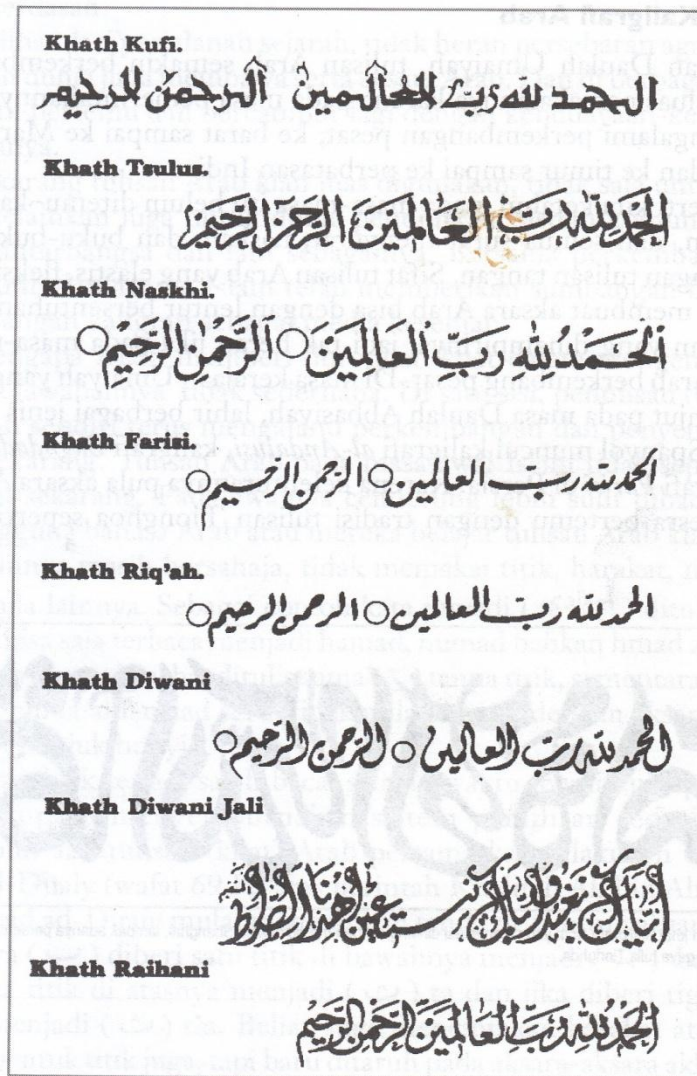 Khath Kufi.
الحمد لله رب العالمين الرحمن الرحيم
Khath Tsulus.
الحمد لله رب العالمين الرحمن الرحيم
Khath Naskhi.
الحمد لله رب العالمين الرحمن الرحيم
Khath Farisi.
الحمد لله رب العالمين الرحمن الرحيم
Khath Riq'ah.
الحمد لله رب العالمين الرحمن الرحيم
Khath Diwani
الحمد لله رب العالمين الرحمن الرحيم
Khath Diwani Jali
إياك نعبد وإياك نستعين اهدنا الصراط
Khath Raihani
الحمد لله رب العالمين الرحمن الرحيم